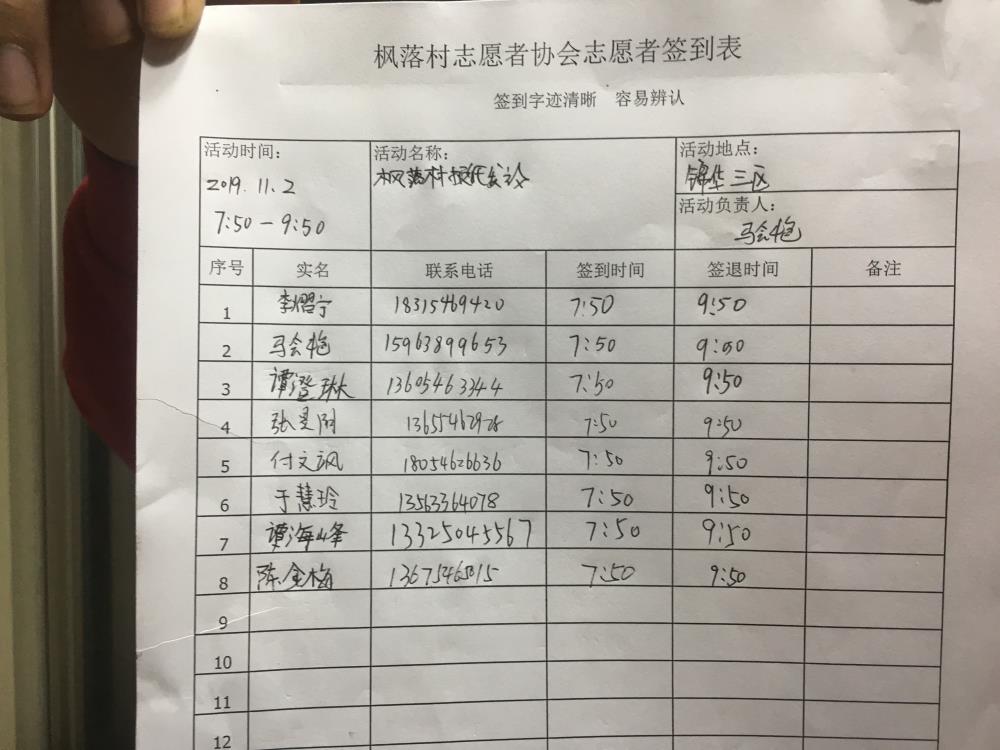 枫落村志愿者协会志愿者签到表
签到字迹清晰 容易辨认
活动时间: 活动名称: 活动地点:
2019.11.2 枫落村 锦华三区
7:50-9:50 活动负责人:
马会艳
序号 实名 联系电话 签到时间 签退时间 备注
1 李熠宁 18315469420 7:50 9:50
2 马会艳 15963899653 7:50 9:50
3 谭澄琳 13605463344 7:50 9:50
4 7:50 9:50
5 付文飒 18054626636 7:50 9:50
6 于慧玲 13563364078 7:50 9:50
7 谭海峰 13325045567 7:50 9:50
8 陈金梅 7:50 9:50
9
10
11
12